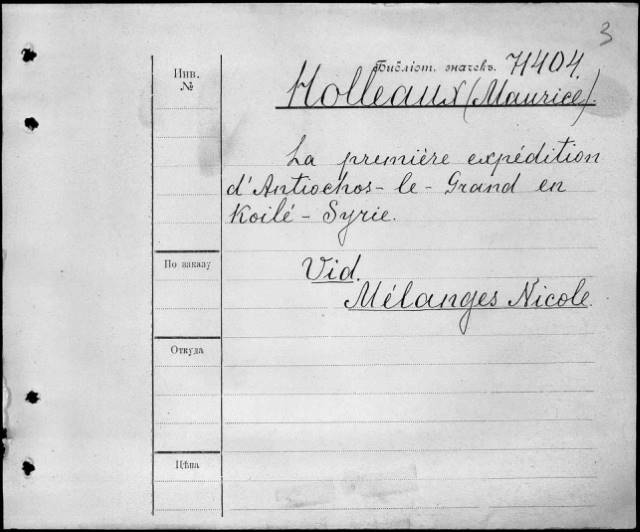 3
Библіот. значекъ. 71404.
Инв.
№
Holleaux (Maurice).
La première expédition
d'Antiochos - le - Grand en
Koilé - Syrie.
По заказу
Vid.
Mélanges Nicole.
Откуда
Цѣна